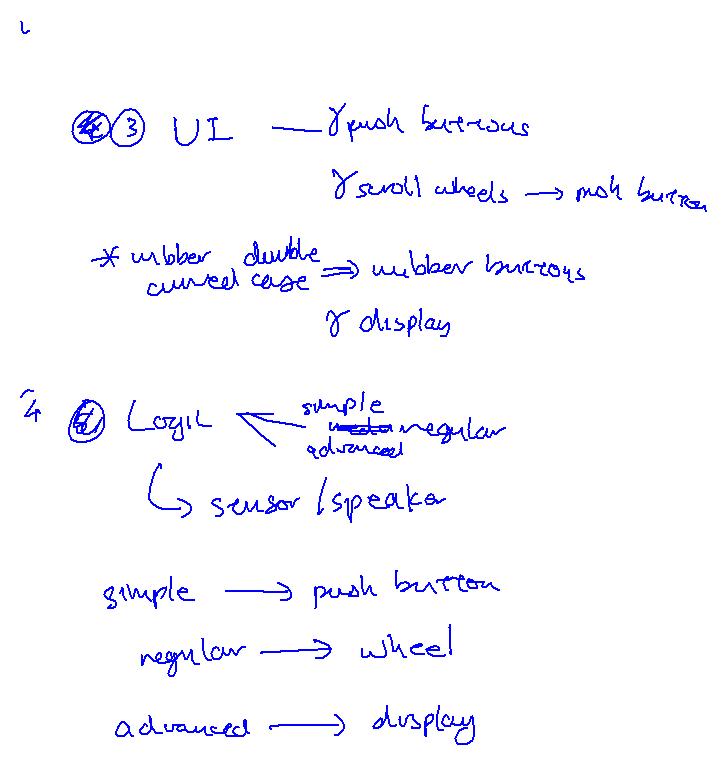 ③ UI — γ push buttons
γ scroll wheels → push button
* rubber double
curved case ⇒ rubber buttons
γ display
4 Logic simple
regular
advanced
↳ sensor / speaker
simple → push button
regular → wheel
advanced → display